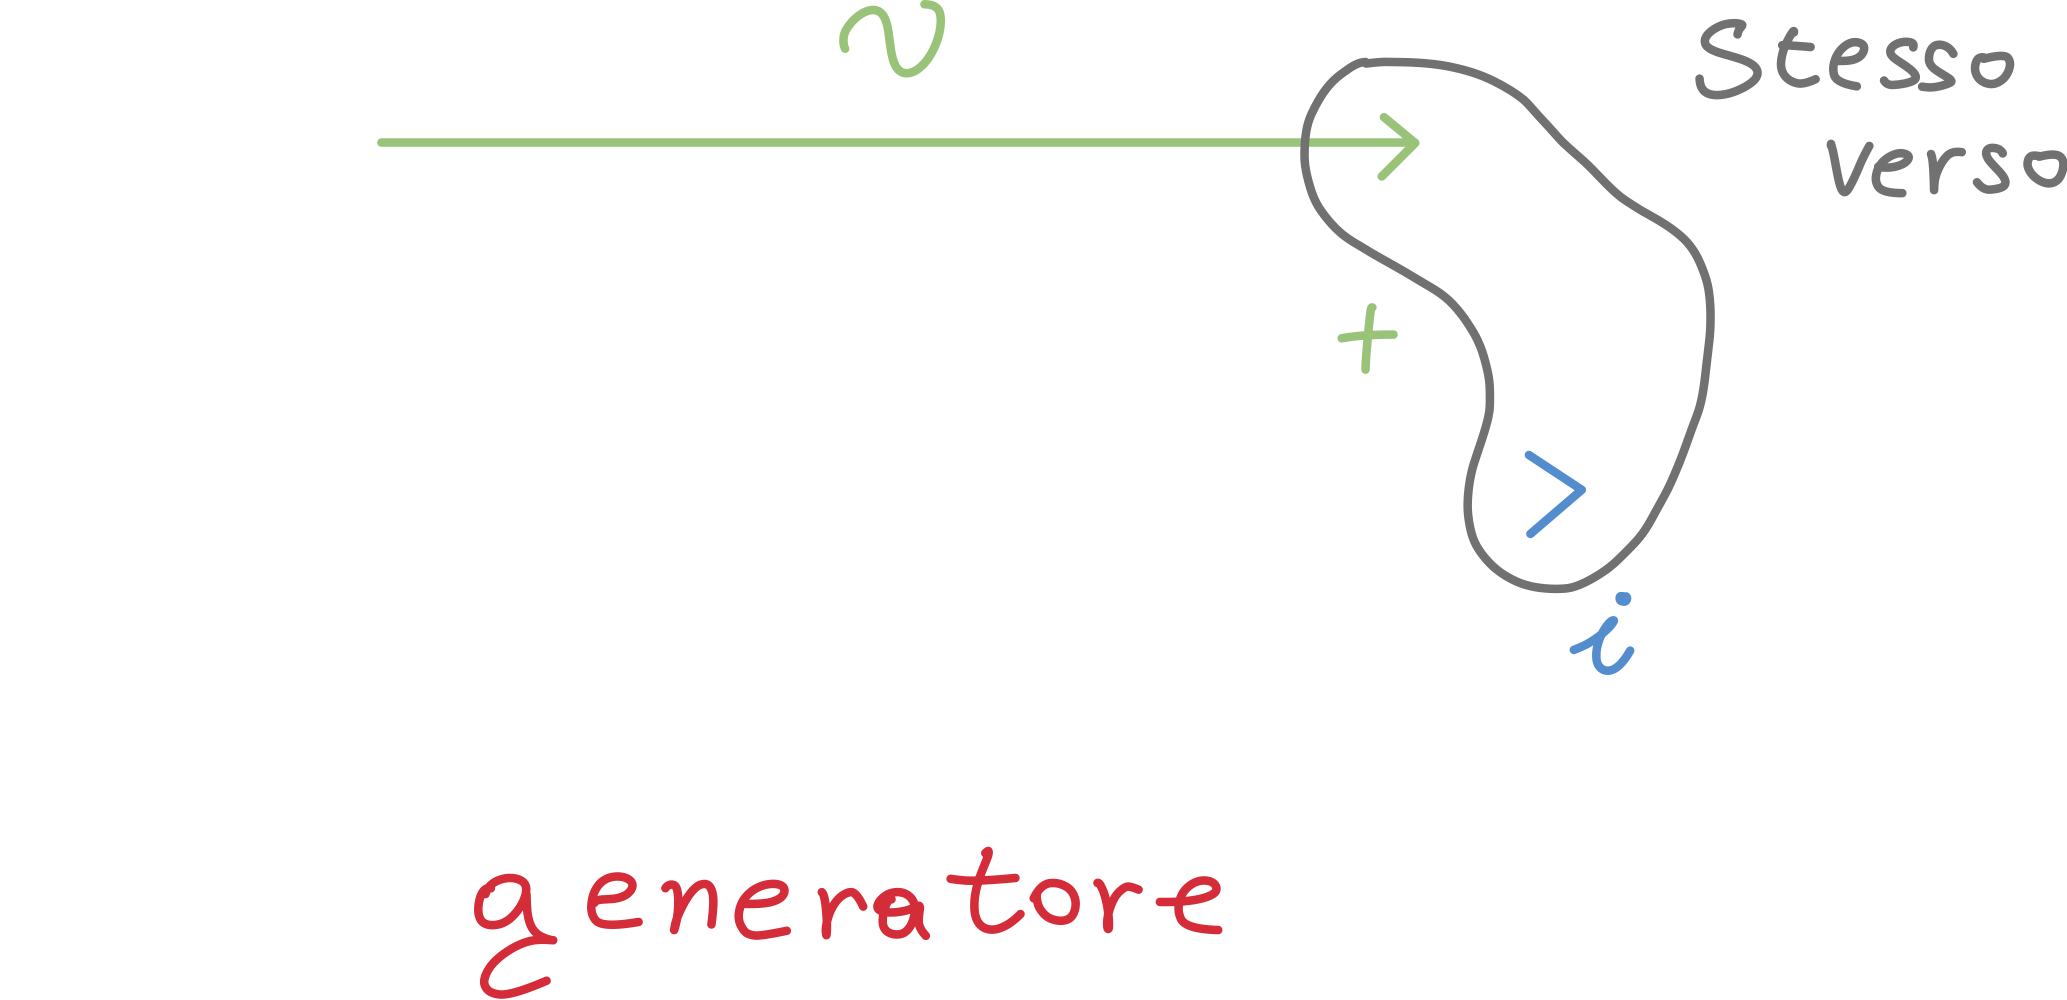 v
Stesso
verso
+
i
generatore